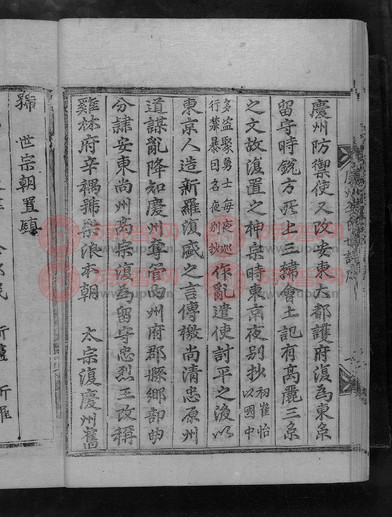 慶州防禦使又改安東大都護府復爲東京
留守時銳方所上三韓會土記有高麗三京
之文故復置之神宗時東京夜別抄初崔怡以國中
多盜聚勇士每夜巡行禁暴因名夜別抄作亂遣使討平之後以
東京人造新羅復盛之言傳檄尚淸忠原州
道謀亂降知慶州奪管內州府郡縣鄕部曲
分隷安東尚州高宗復爲留守忠烈王改稱
雞林府辛禑號樂浪本朝 太宗復慶州舊
號 世宗朝置鎭